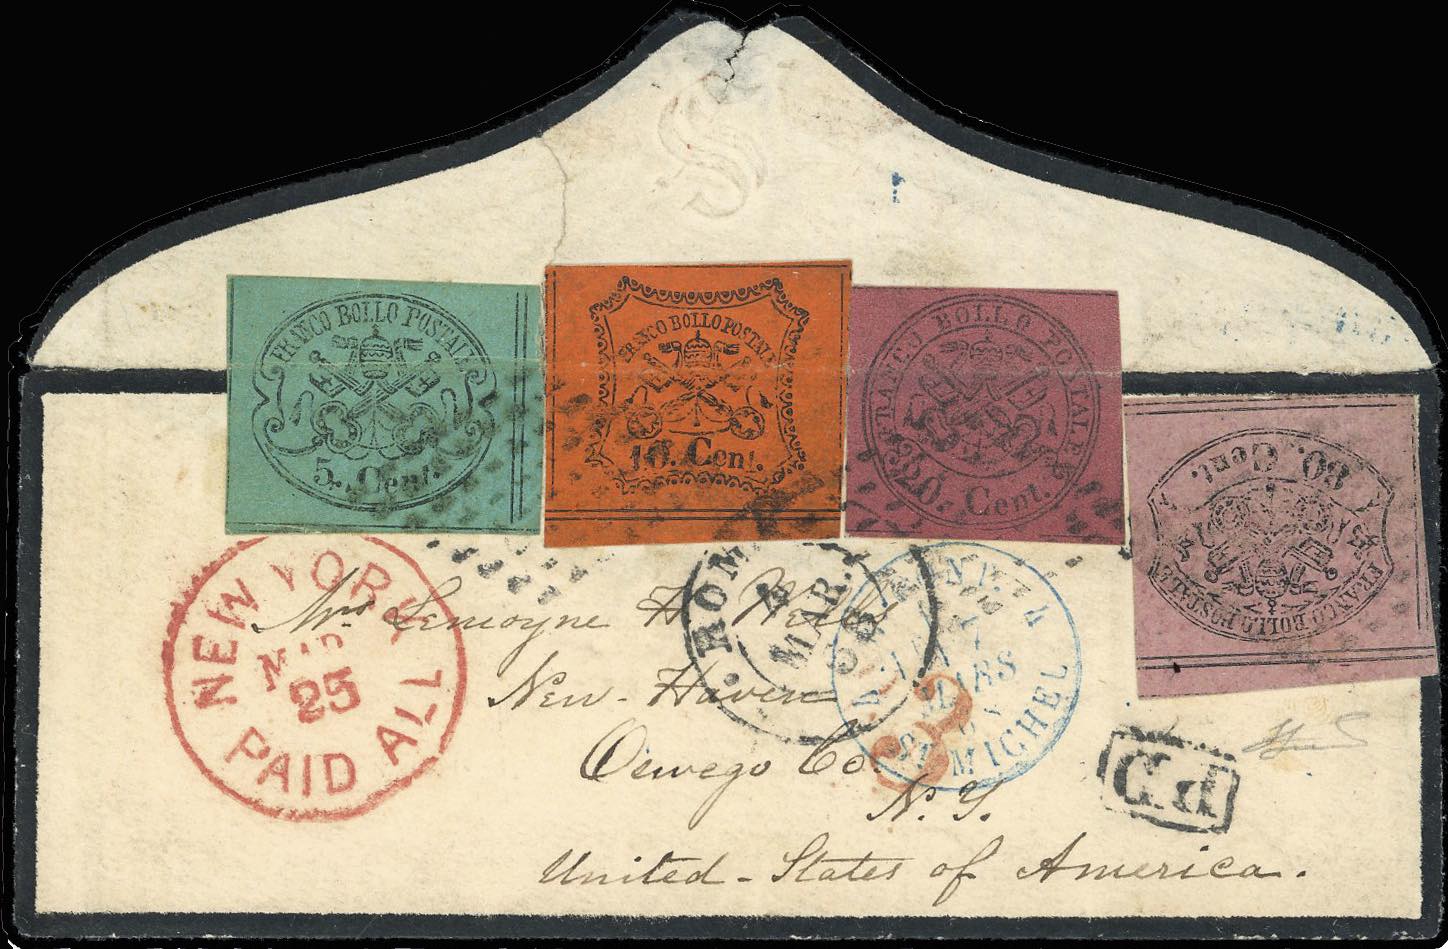 S
FRANCO BOLLO POSTALE
5. Cent.
FRANCO BOLLO POSTALE
10. Cent.
FRANCO BOLLO POSTALE
20. Cent.
FRANCO BOLLO POSTALE
80. Cent.
NEW YORK
MAR
25
PAID ALL
ROMA
4
MAR.
68
7
MARS
ST MICHEL
Mrs Lemoyne H. Wells
New-Haven
Oswego Co.
N.Y.
United-States of America.
P.D